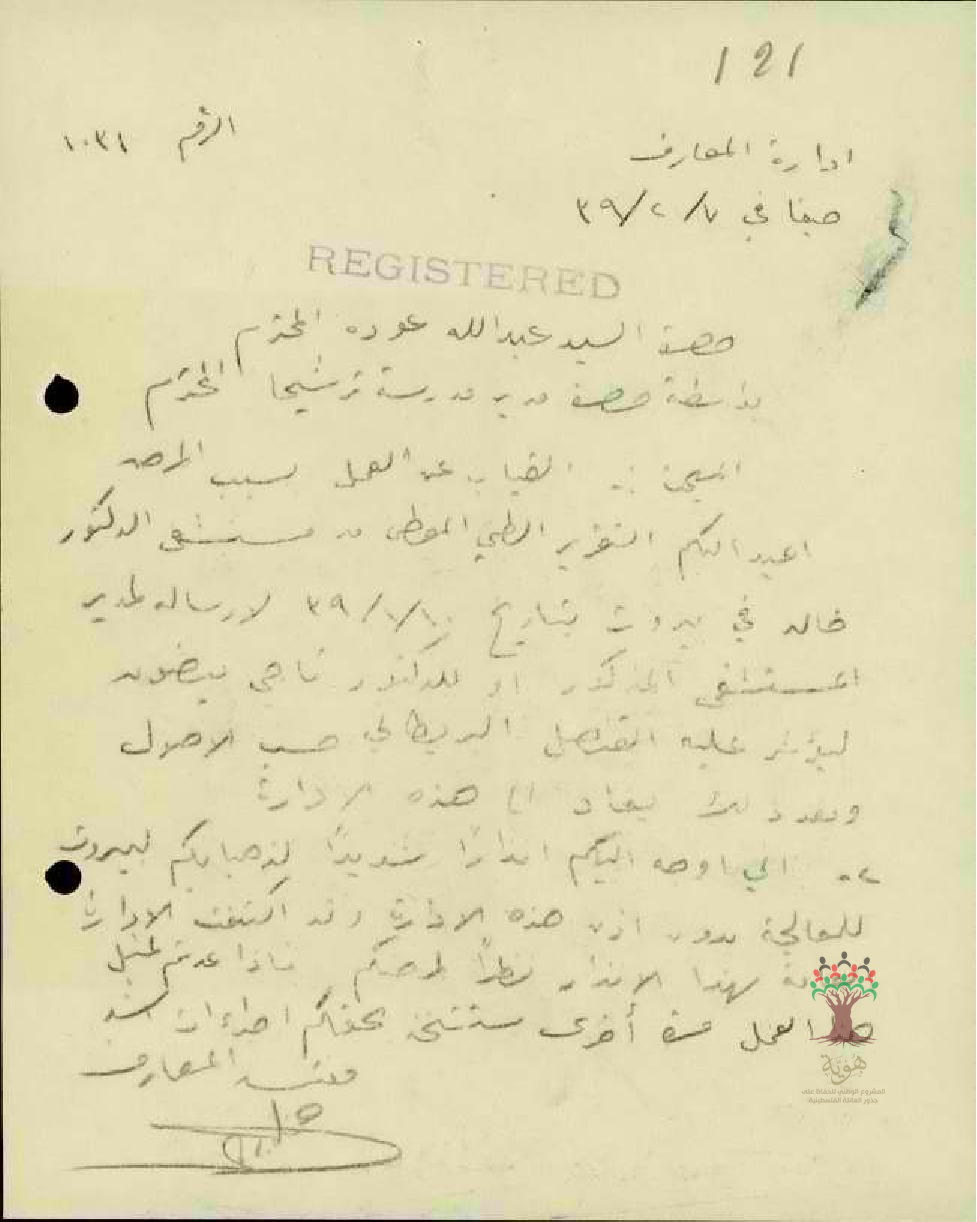 121
ادارة المعارف
الرقم ١٠٣١
صفا في ٧/ ٢/ ٣٩
REGISTERED
حضرة السيد عبدالله عوده المحترم
بواسطة حضرة مدير مدرسة ترشيحا المحترم
الغياب عن العمل بسبب المرض
اعيد اليكم التقرير الطبي المعطى من مستشفى الدكتور
خالد في بيروت بتاريخ ٣٩/١/١٠ لارساله لمدير
المستشفى المذكور او للدكتور ناجي بيضون
ليؤشر عليه القنصل البريطاني حسب الاصول
وبعد ذلك يعاد الى هذه الادارة
٢- اني اوجه اليكم انذارًا شديدًا لذهابكم لبيروت
للمعالجة بدون اذن هذه الادارة وقد اكتفت الادارة
بهذا الانذار نظرًا لمرضكم فاذا عدتم لمثل
هذا العمل مرة أخرى ستتخذ بحقكم اجراءات اشد
مفتش المعارف
هوية
المشروع الوطني للحفاظ على
جذور العائلة الفلسطينية